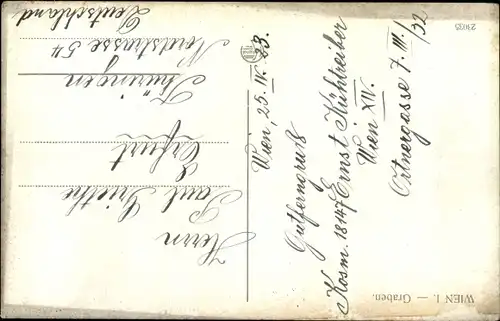 WIEN I. — Graben.
Wien, 25. IV. 23.
Gutferngruß
Kosm. 18147 Ernst Kühtreiber
Wien XIV.
Ortnergasse 7. III./32
Herrn
Paul Griethe
Erfurt
Thüringen
Nordstrasse 54
Deutschland